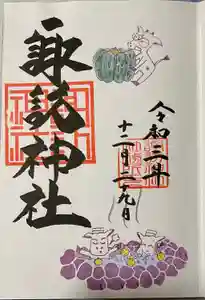 令和三年
十二月二九日
諏訪神社